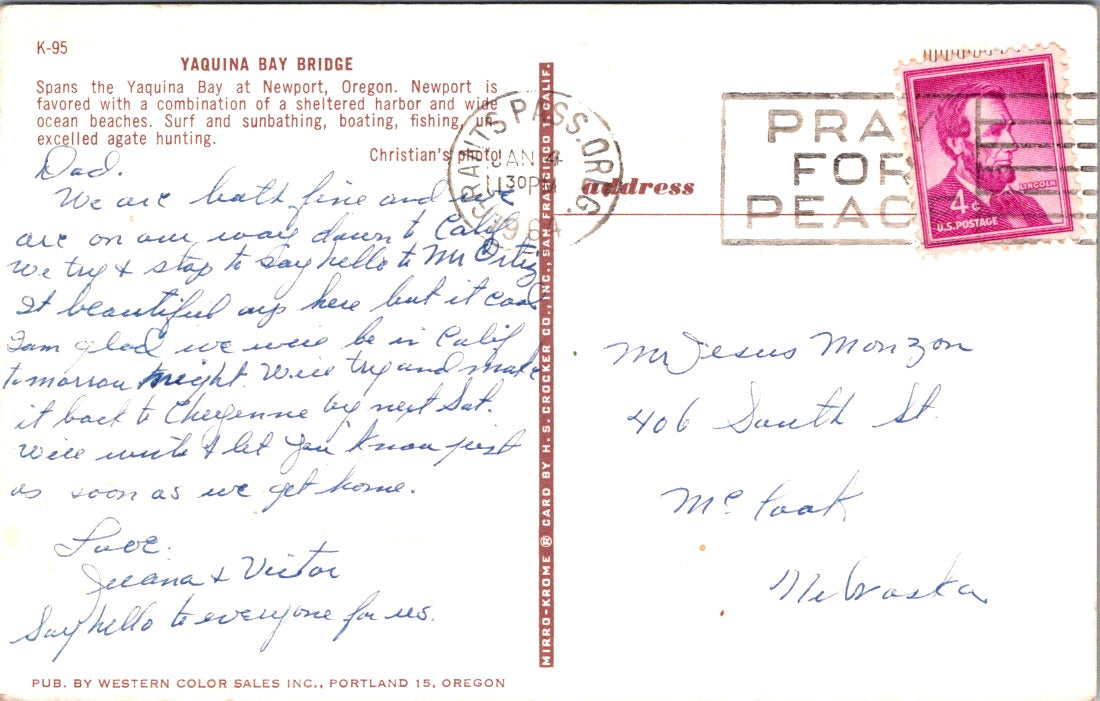 K-95
YAQUINA BAY BRIDGE
Spans the Yaquina Bay at Newport, Oregon. Newport is
favored with a combination of a sheltered harbor and wide
ocean beaches. Surf and sunbathing, boating, fishing, un-
excelled agate hunting.
Christian's photo
Dad.
We are both fine and we
are on our way down to Calif.
We try & stop to say hello to Mr Ortiz
It beautiful up here but it cool
I am glad we will be in Calif
tomorrow night. Will try and make
it back to Cheyenne by next Sat.
Will write & let you know just
as soon as we get home.
Love.
Juana & Victor
Say hello to everyone for us.
PUB. BY WESTERN COLOR SALES INC., PORTLAND 15, OREGON
MIRRO-KROME ® CARD BY H. S. CROCKER CO., INC., SAN FRANCISCO 1, CALIF.
GRANTS PASS, OREG.
JAN 4
1964
PRAY
FOR
PEACE
LINCOLN
4¢
U.S. POSTAGE
address
Mr Jesus Monzon
406 South St.
Mc Cook
Nebraska